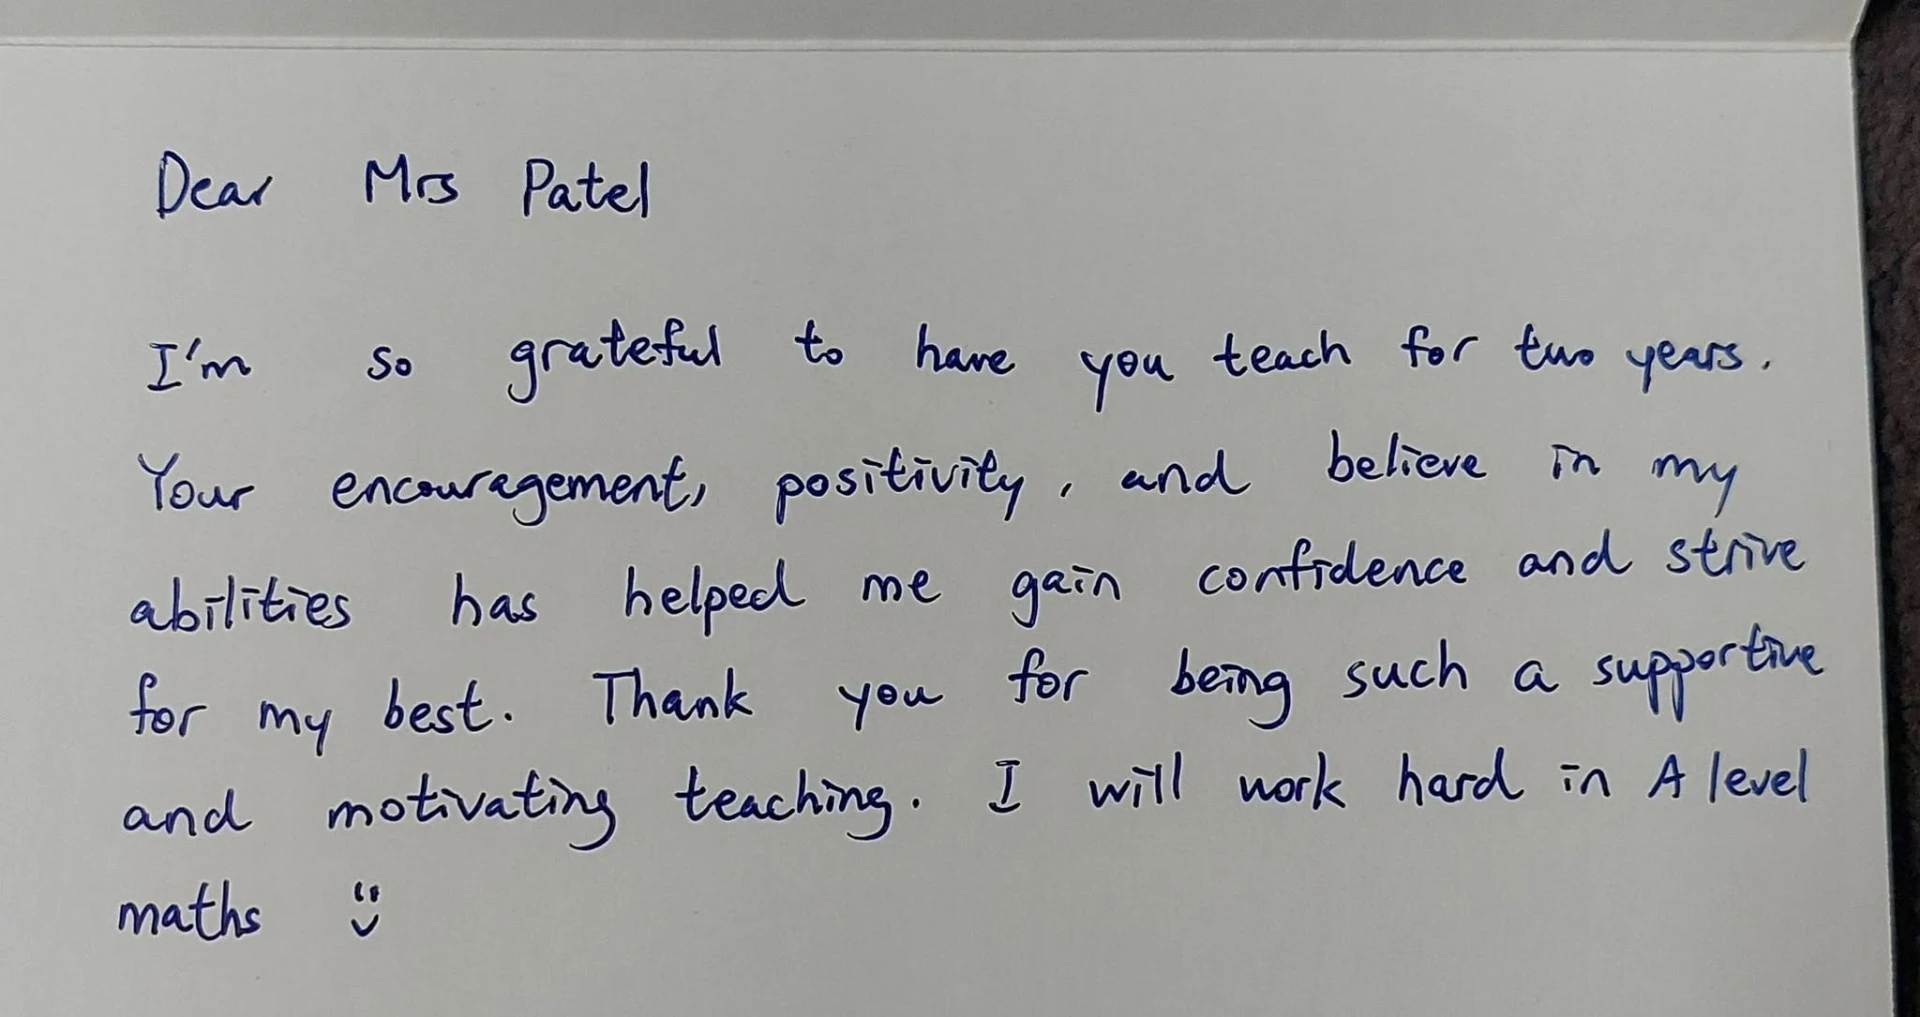 Dear Mrs Patel
I'm so grateful to have you teach for two years.
Your encouragement, positivity, and believe in my
abilities has helped me gain confidence and strive
for my best. Thank you for being such a supportive
and motivating teaching. I will work hard in A level
maths :)